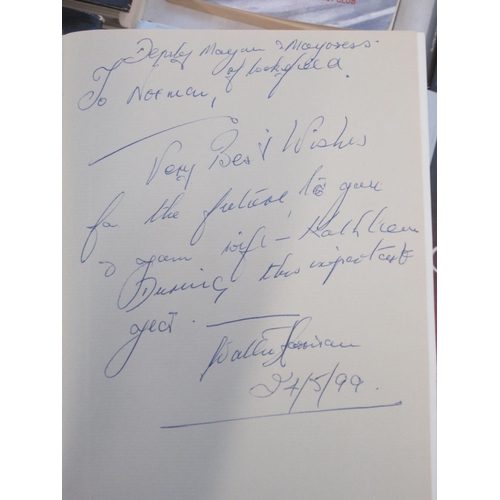 Deputy Mayor & Mayoress
of
To Norman,
Very Best Wishes
for the future to you
& your wife - Kathleen
During this important
year.
Walter
27/5/99.